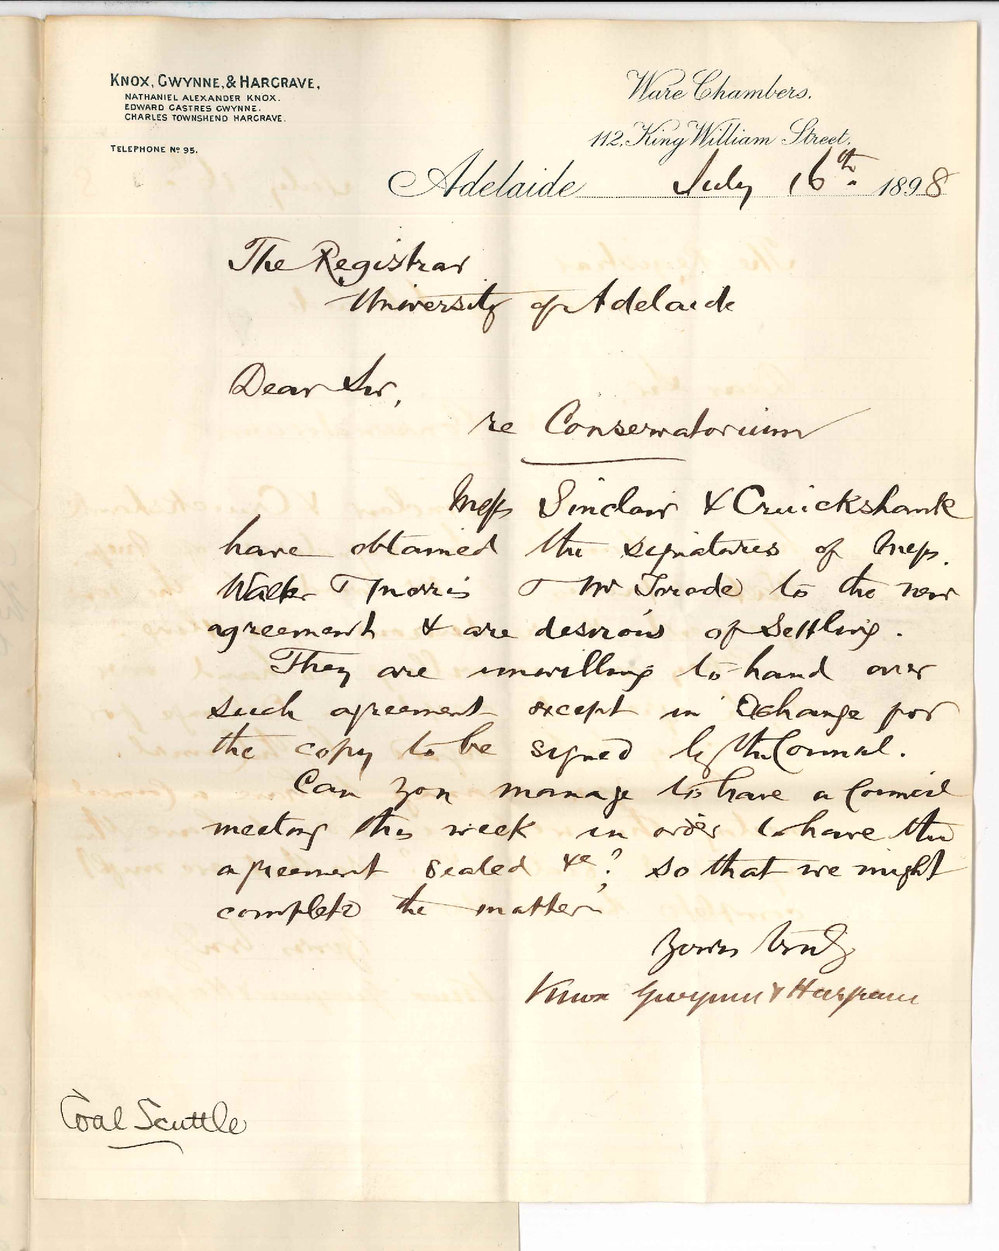 KNOX, GWYNNE, & HARGRAVE,
NATHANIEL ALEXANDER KNOX.
EDWARD CASTRES GWYNNE.
CHARLES TOWNSHEND HARGRAVE.
TELEPHONE No 95.
Ware Chambers.
112, King William Street.
Adelaide July 16th. 1898
The Registrar
University of Adelaide
Dear Sir,
re Conservatorium
Messs Sinclair & Cruickshank
have obtained the signatures of Mess.
Walter & Morris & Mr Torode to the new
agreement & are desirous of settling.
They are unwilling to hand over
such agreement except in exchange for
the copy to be signed by the Council.
Can you manage to have a Council
meeting this week in order to have the
agreement sealed &c? so that we might
complete the matter
Yours truly
Knox Gwynne & Hargrave
Coal Scuttle